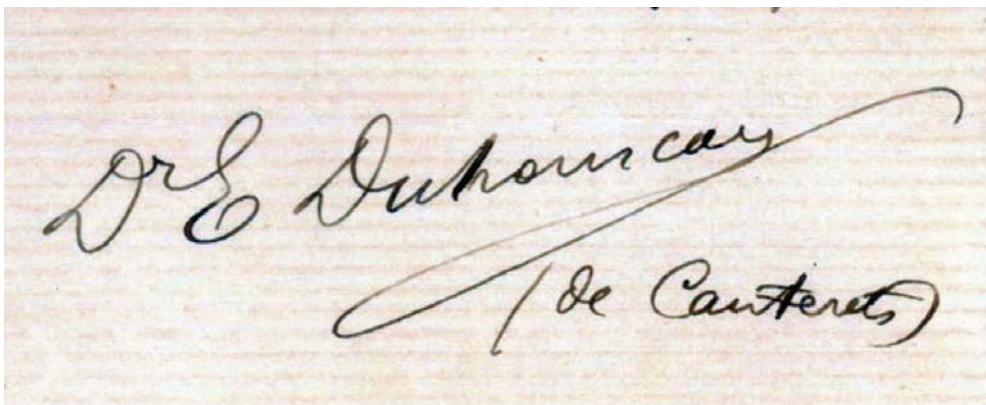 Dr E Duhourcau
(de Cauterets)